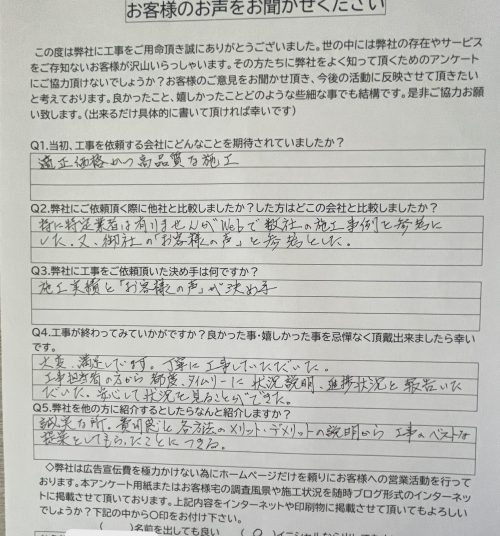 お客様のお声をお聞かせください
この度は弊社に工事をご用命頂き誠にありがとうございました。世の中には弊社の存在やサービス
をご存知ないお客様が沢山いらっしゃいます。その方たちに弊社をよく知って頂くためのアンケート
にご協力頂けないでしょうか?お客様のご意見をお聞かせ頂き、今後の活動に反映させて頂きたい
と考えております。良かったこと、嬉しかったことどのような些細な事でも結構です。是非ご協力お願
い致します。(出来るだけ具体的に書いて頂ければ幸いです)
Q1.当初、工事を依頼する会社にどんなことを期待されていましたか?
適正価格かつ高品質な施工
Q2.弊社にご依頼頂く際に他社と比較しましたか?した方はどこの会社と比較しましたか?
特に特定業者は有りませんがWebで数社の施工事例を参考に
した。又、御社の「お客様の声」を参考とした。
Q3.弊社に工事をご依頼頂いた決め手は何ですか?
施工実績と「お客様の声」が決め手
Q4.工事が終わってみていかがですか?良かった事・嬉しかった事を忌憚なく頂戴出来ましたら幸い
です。
大変、満足しています。丁寧に工事していただいた。
工事担当者の方から都度、タイムリーに状況説明、進捗状況を報告いた
だいた。安心して状況を見ることができた。
Q5.弊社を他の方に紹介するとしたらなんと紹介しますか?
誠実な所。費用と各方法のメリット・デメリットの説明から工事のベストな
提案をしてもらったことにつきる。
◇弊社は広告宣伝費を極力かけない為にホームページだけを頼りにお客様への営業活動を行って
おります。本アンケート用紙またはお客様宅の調査風景や施工状況を随時ブログ形式のインターネッ
トに掲載させて頂いております。上記内容をインターネットや印刷物に掲載させて頂いてもよろしい
でしょうか?下記の中から〇印をお付け下さい。
( )名前を出しても良い (○)イニシャルなら出しても